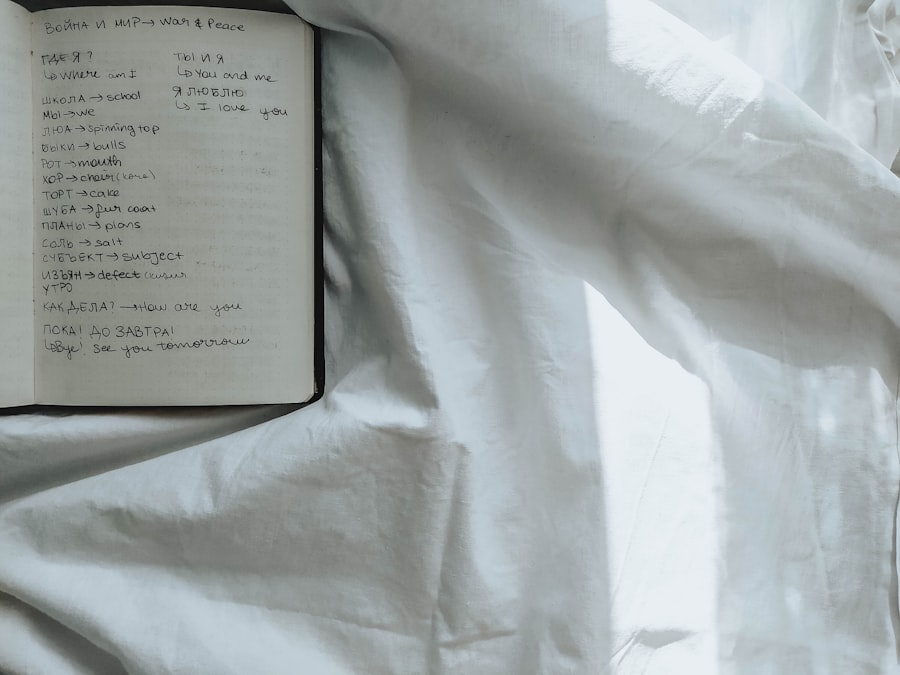 ВОЙНА И МИР → War & Peace
ГДЕ Я ?
↳ Where am I
ШКОЛА → school
МЫ → we
ЛЮА → spinning top
БЫКИ → bulls
РОТ → mouth
ХОР →
ТОРТ → cake
ШУБА → fur coat
ПЛАНЫ → plans
СОЛЬ → salt
СУБЪЕКТ → subject
ИЗЪЯН → defect
УТРО
КАК ДЕЛА? → How are you
ПОКА! ДО ЗАВТРА!
↳ Bye! See you tomorrow
ТЫ И Я
↳ You and me
Я ЛЮБЛЮ
↳ I love you